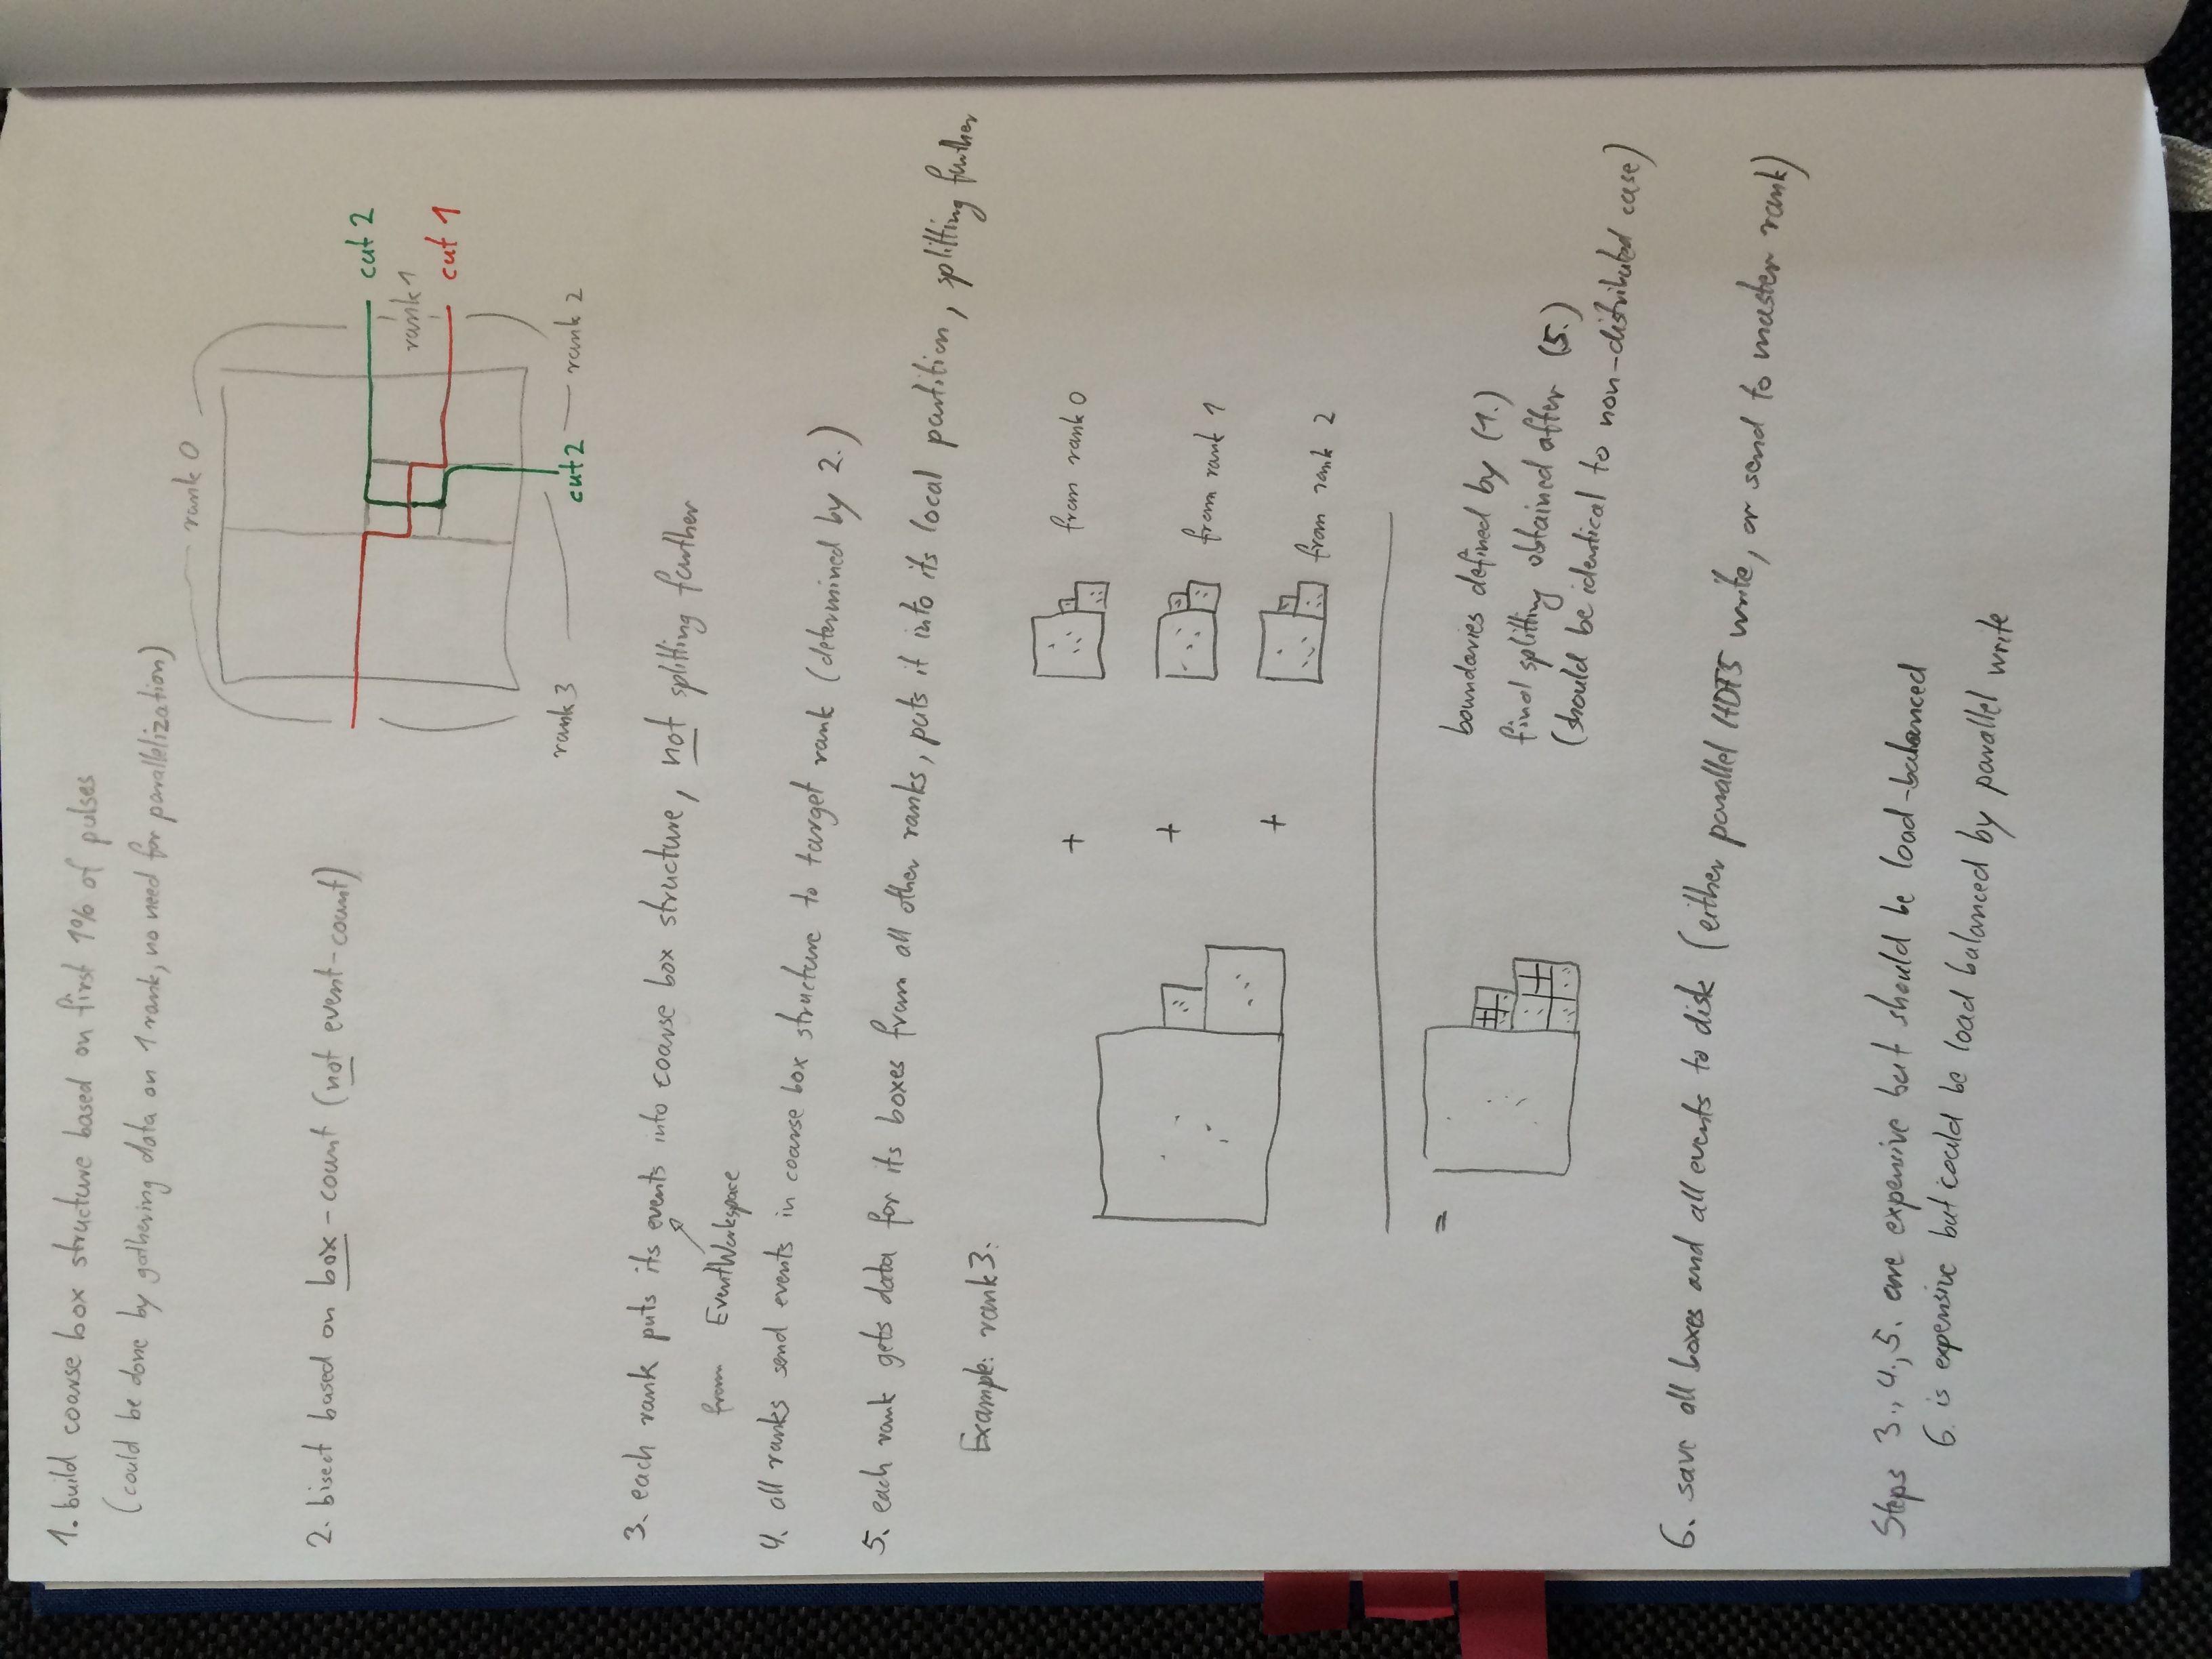 1. build coarse box structure based on first 1% of pulses
(could be done by gathering data on 1 rank, no need for parallelization)
rank 0
2. bisect based on box-count (not event-count)
cut 2
rank 1
cut 1
rank 3
cut 2
rank 2
3. each rank puts its events into coarse box structure, not splitting further
from EventWorkspace
4. all ranks send events in coarse box structure to target rank (determined by 2.)
5. each rank gets data for its boxes from all other ranks, puts it into its local partition, splitting further
Example: rank 3:
+ from rank 0
+ from rank 1
+ from rank 2
=
boundaries defined by (1.)
final splitting obtained after (5.)
(should be identical to non-distributed case)
6. save all boxes and all events to disk (either parallel HDF5 write, or send to master rank)
Steps 3., 4., 5. are expensive but should be load-balanced
6. is expensive but could be load balanced by parallel write